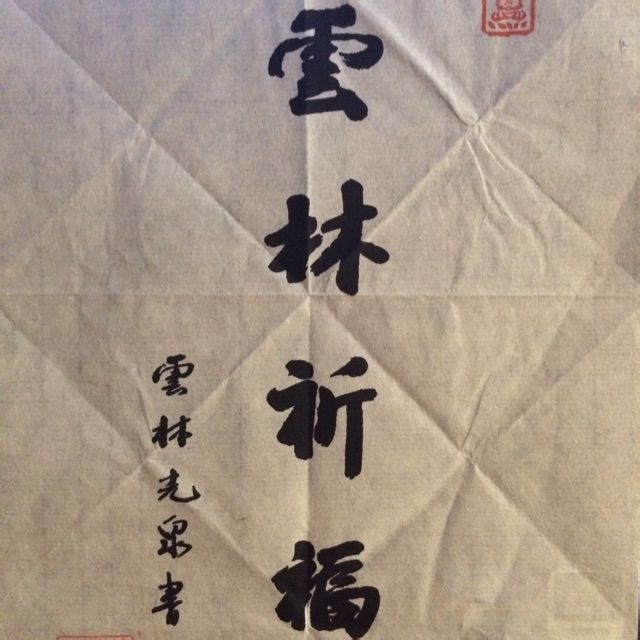 雲林祈福
雲林光泉書